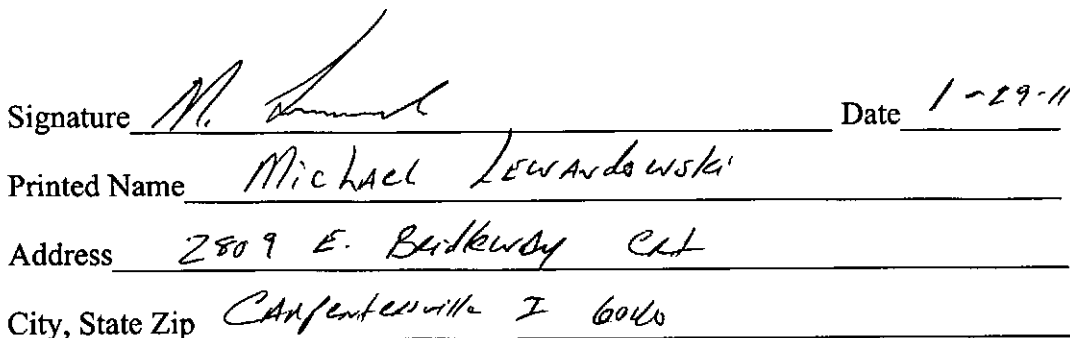 Signature M. Date 1-29-11
Printed Name Michael Lewandowski
Address 2809 E.
City, State Zip Carpentersville I